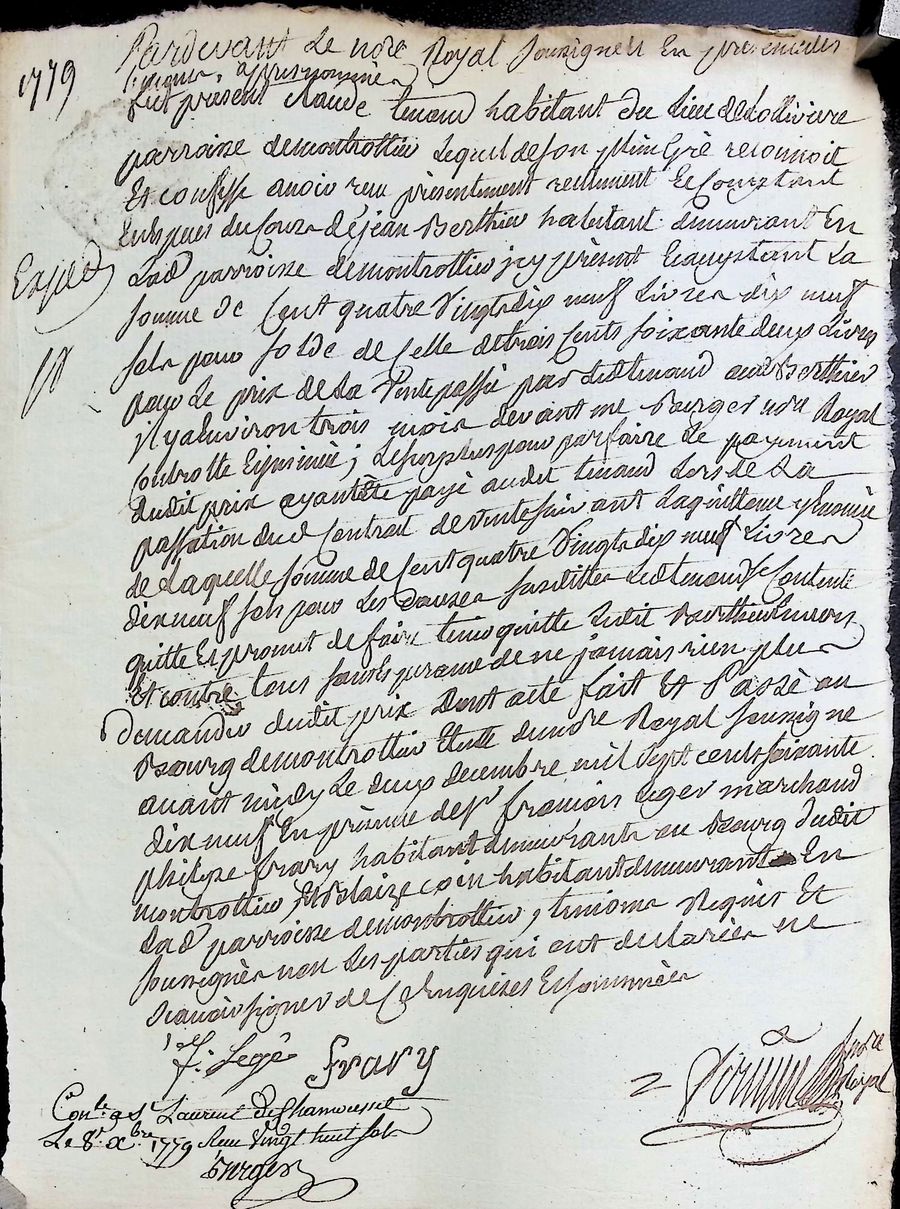 1779
Pardevant Le nore Royal soussigneé En presence des
temoins apres nommés
fut present Claude tenaud habitant du Lieu de
parroisse demontrottier Lequel de son plein Gré reconnoit
Et confesse avoir recu présentement reellement Et Comptant
En Espèces du Cours de jean Berthier habitant demeurant En
Lad parroisse demontrottier jcy présent Eacceptant La
Expéd
somme de Cent quatre Vingts dix neuf Livres dix neuf
sols pour solde de Celle de trois Cents soixante deux Livres
pour Le prix de La Vente passée par Ledit tenaud aud Berthier
jl y a Environ trois mois devant me Barges nore Royal
Controllé Et jnsinué ; Le surplus pour parfaire Le payement
dudit prix ayant Eté payé audit tenaud Lors de La
passation dud Contrat de Vente suivant La quittance y Enoncée
de Laquelle somme de Cent quatre Vingts dix neuf Livres
dix neuf sols pour Les Causes susdittes Led tenaud se Contente
quitte Et promet de faire tenir quitte Ledit Berthier Envers
Et contre tous sous promesse de ne jamais rien plus
demander dudit prix Dont acte fait Et Passé au
Bourg demontrottier Etude dunore Royal soussigné
avant midy Le deux decembre mil sept cents soixante
dix neuf En présence de sr francois Leger marchand
philipe frary habitant demeurants au Bourg dudit
montrottier, Et Blaize coin habitant demeurant En
Lad parroisse demontrottier, temoins Requis Et
soussignés non Les parties qui ont declarées ne
scavoir signer de Ce Enquises Et sommées
f. Legé Frary
nore
Royal
Conlé a St Laurent De Chamousset
Le 8e Xbre 1779 Recu Vingt huit sols
Barges